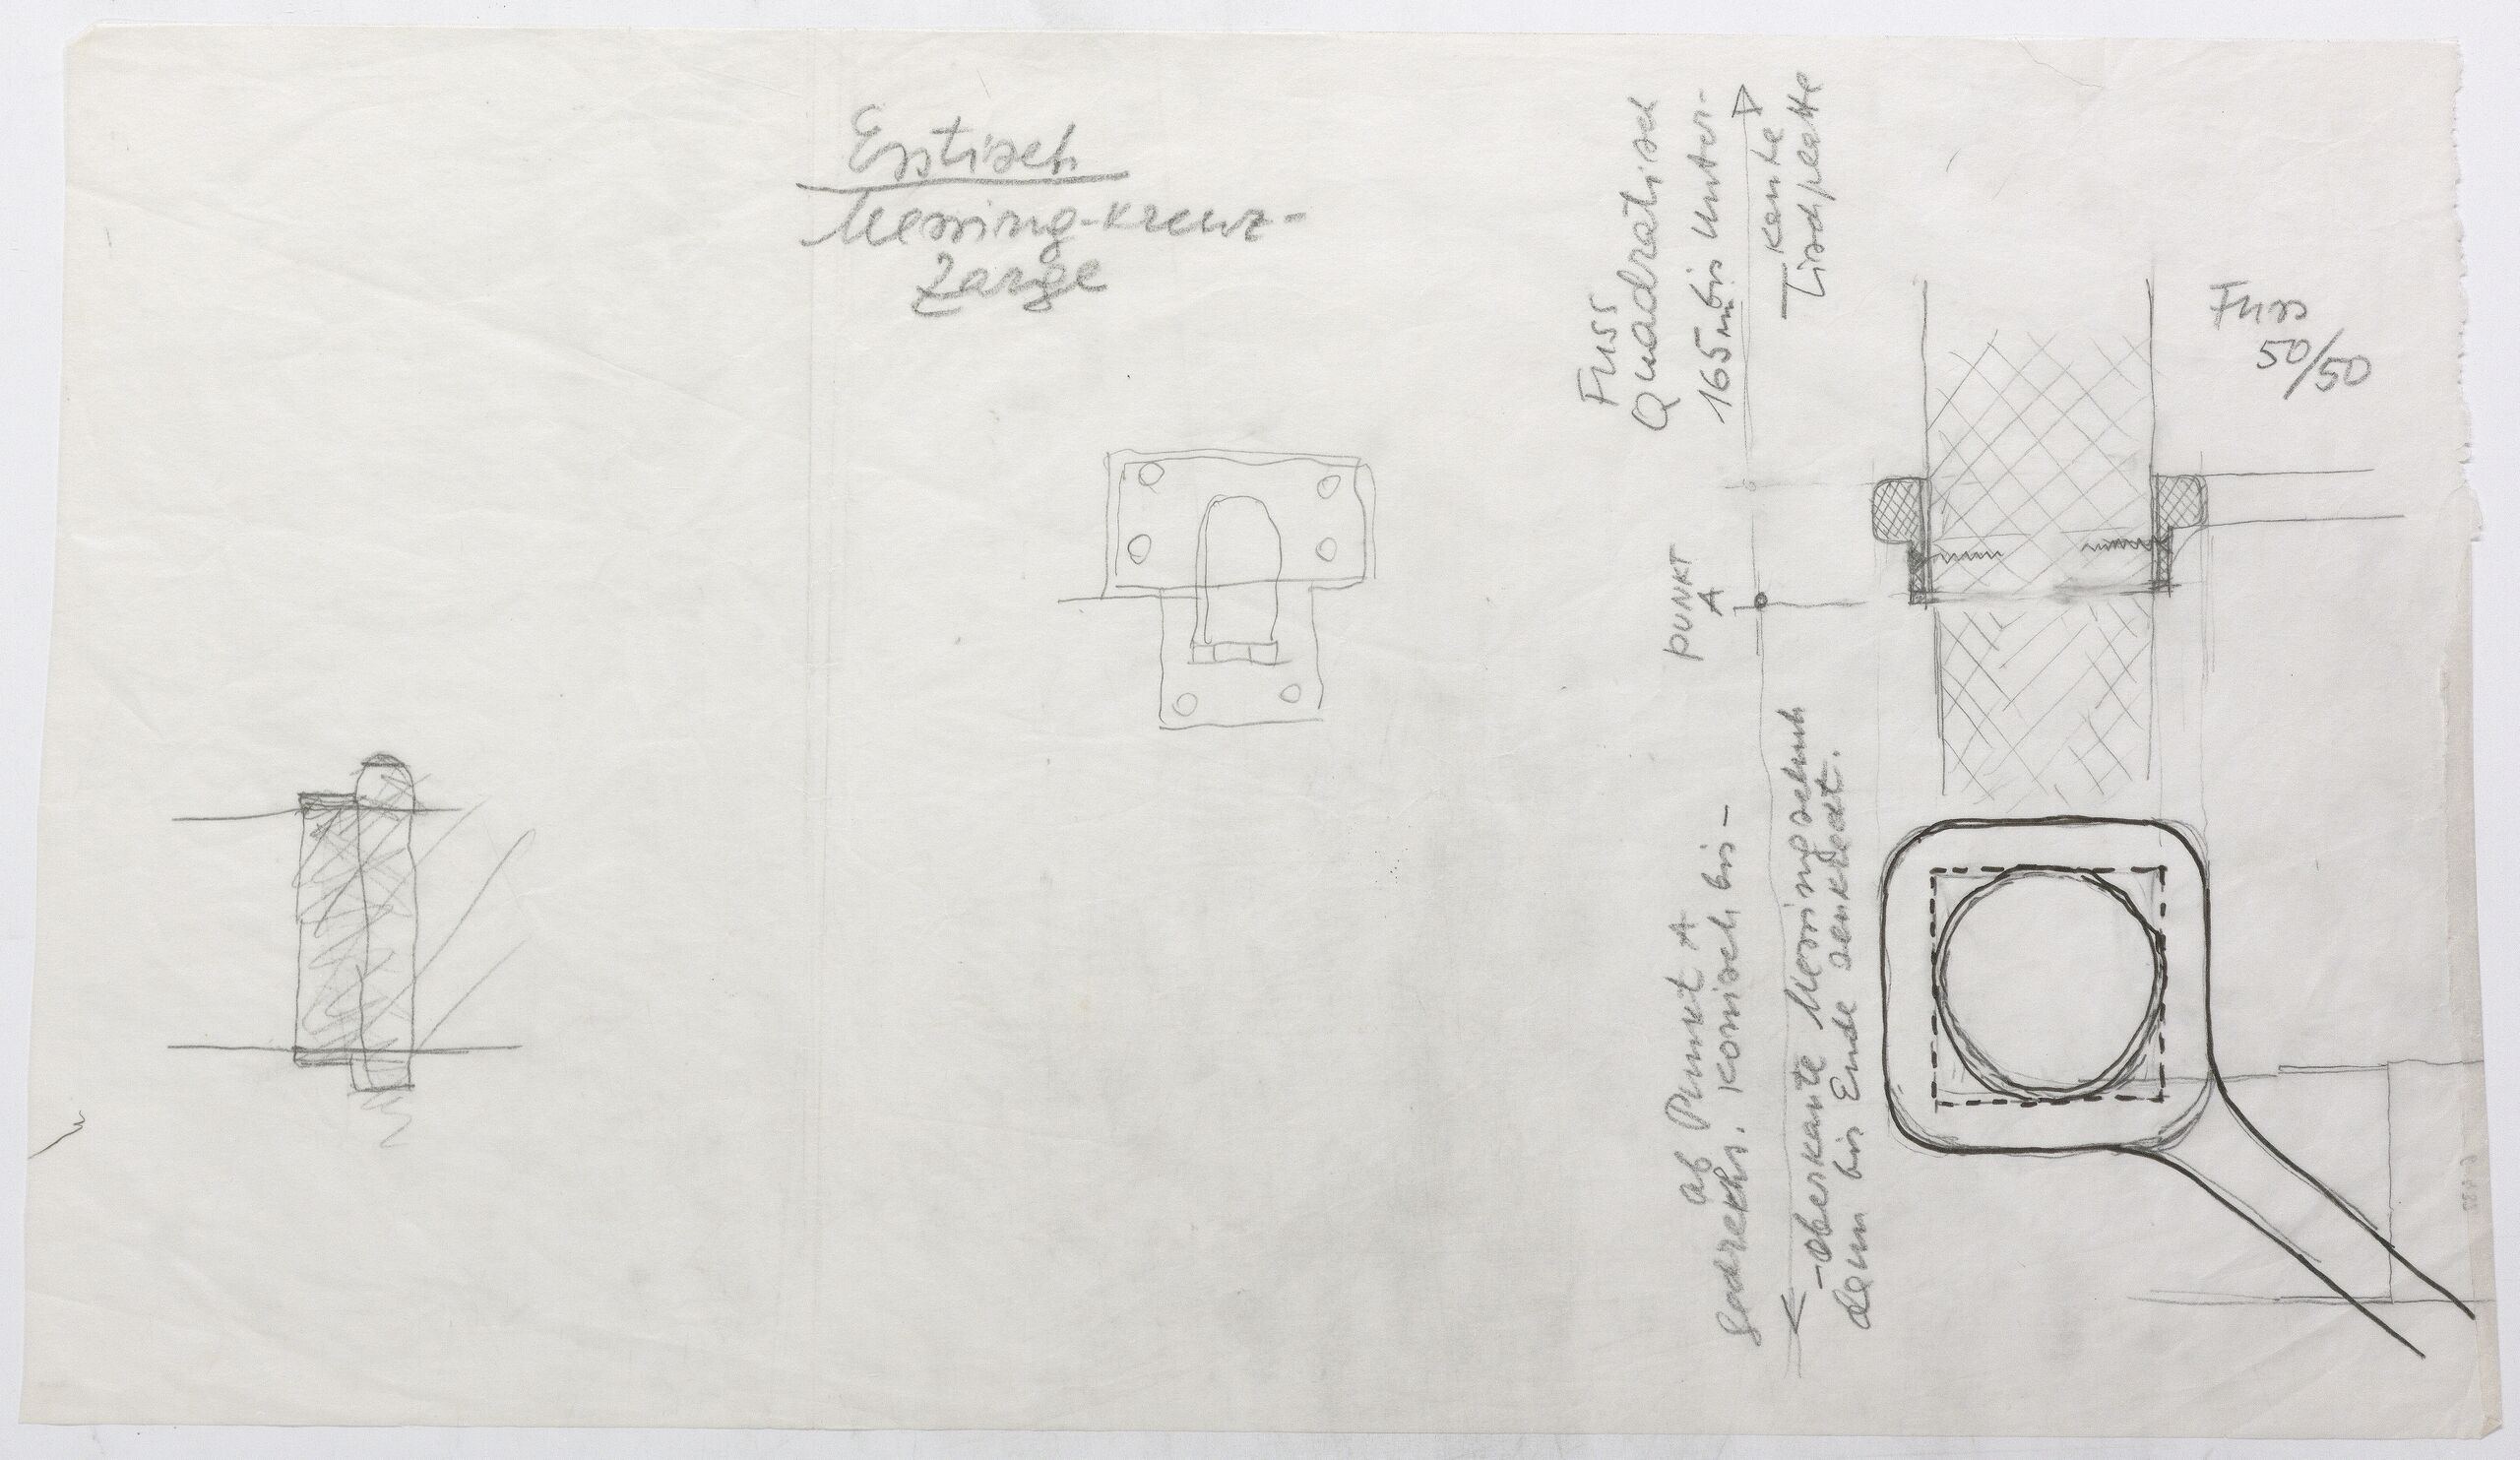 Esstisch
Messing-Kreuz-
Zarge
Fuss
Quadratisch
165mm bis Unter-
kante
Tischplatte
Fuss
50/50
PUNKT
A
ab Punkt A
konisch bis -
- Oberkante Messingschuh
dann bis Ende senkrecht.